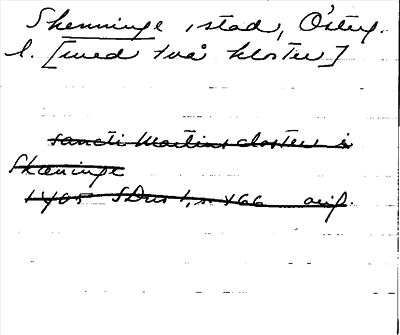 Skenninge, stad, Österg.
l. [med två kloster]
sancti Martins closters i
Skæninge
1405 SDns 1, s. 466 avif.